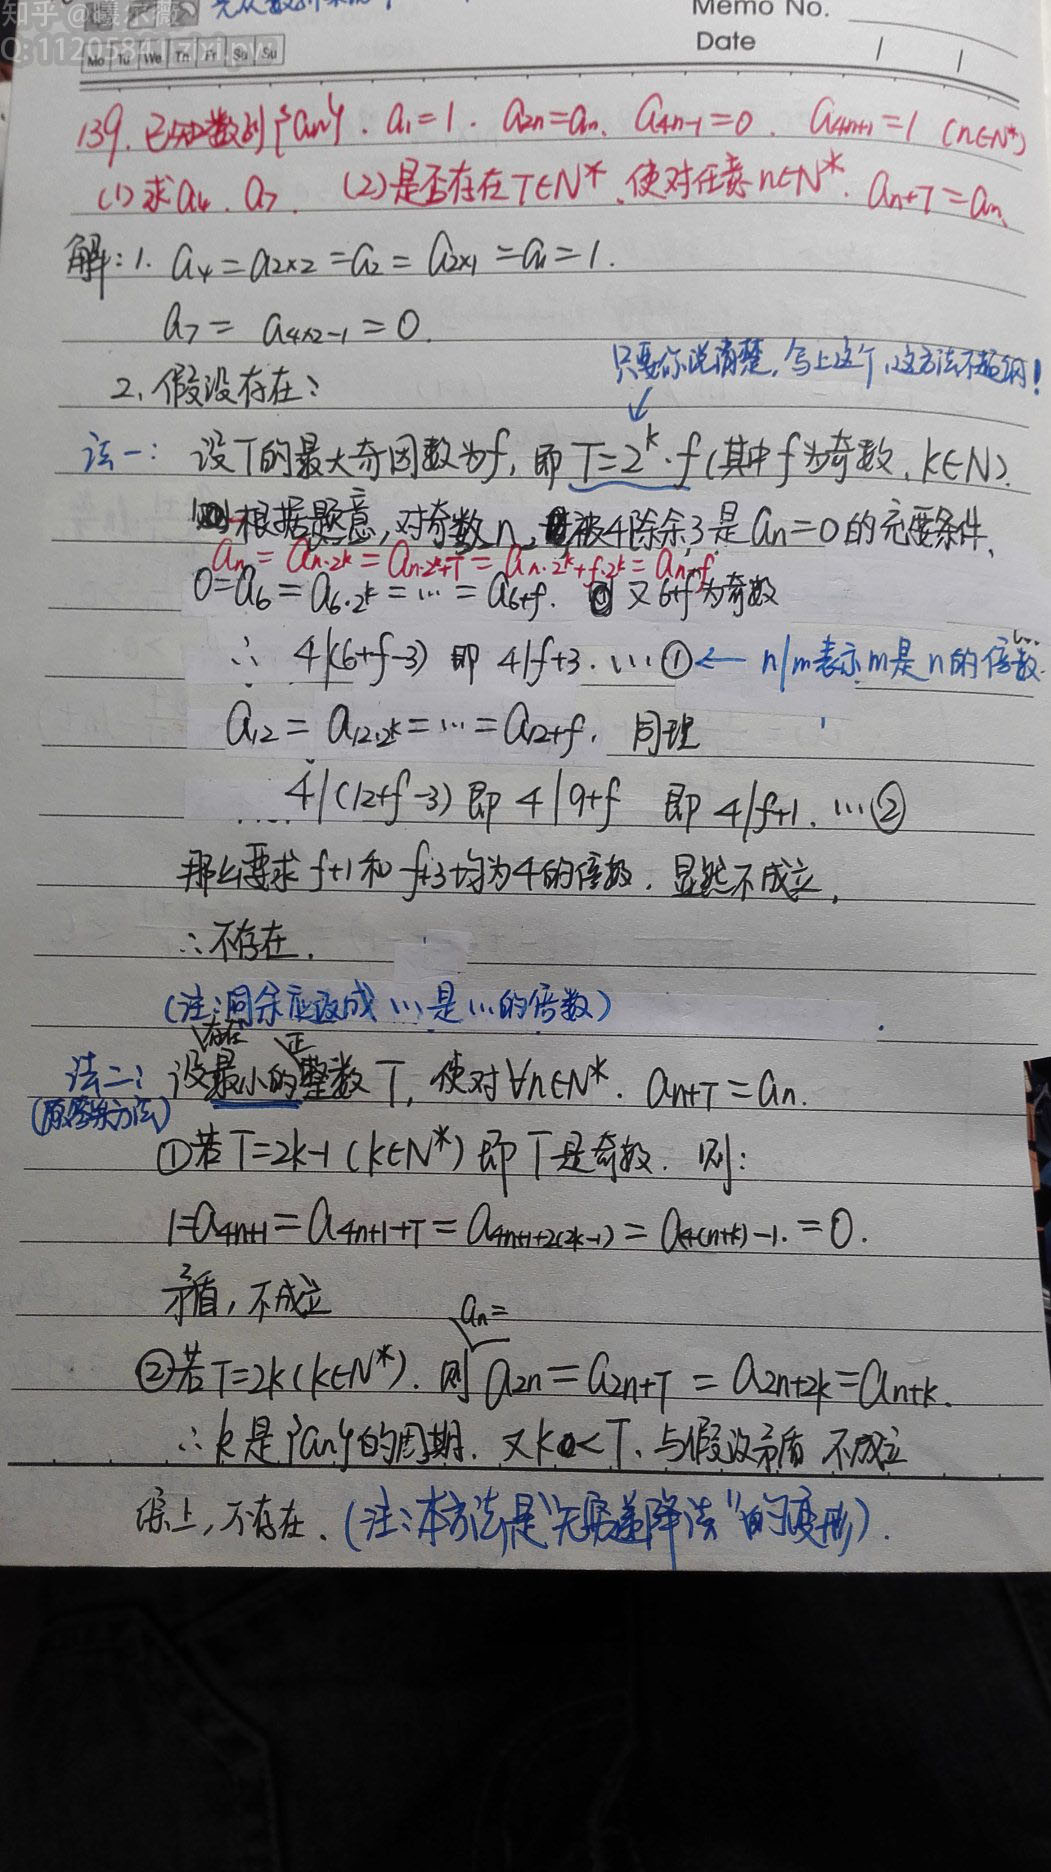 知乎 @曦尔薇
Memo No.
Mo Tu We Th Fr Sa Su
Date
139. 已知数列{an}. a₁=1. a2n=an. a4n-1=0. a4n+1=1 (n∈N*)
(1) 求a₄. a₇. (2)是否存在T∈N*, 使对任意n∈N*. an+T=an.
解: 1. a₄=a2×2=a₂=a2×1=a₁=1.
a₇= a4×2-1=0.
只要你说清楚, 写上这个, 这方法不超纲!
2. 假设存在:
法一: 设T的最大奇因数为f, 即T=2^k·f(其中f为奇数, k∈N).
根据题意, 对奇数n, 被4除余3是an=0的充要条件.
an= an·2^k= an·2^k+T= an·2^k+f·2^k= an+f
0=a₆=a6·2^k=…=a6+f. 又6+f为奇数
∴ 4|(6+f-3) 即 4|f+3. …① ← n|m表示m是n的倍数.
a₁₂= a12·2^k=…=a12+f. 同理
4|(12+f-3) 即 4|9+f 即 4|f+1. …②
那么要求 f+1和f+3均为4的倍数. 显然不成立.
∴不存在.
(注: 同余应改成…是…的倍数)
法二: 设存在最小的正整数T, 使对∀n∈N*. an+T=an.
(原答案方法)
①若T=2k-1(k∈N*)即T是奇数. 则:
1=a4n+1=a4n+1+T=a4n+1+2(2k-1)=a4(n+k)-1.=0.
矛盾, 不成立
②若T=2k(k∈N*). 则an=a2n=a2n+T=a2n+2k=an+k.
∴k是{an}的周期. 又k<T. 与假设矛盾 不成立
综上, 不存在. (注: 本方法是“无穷递降法”的变形).